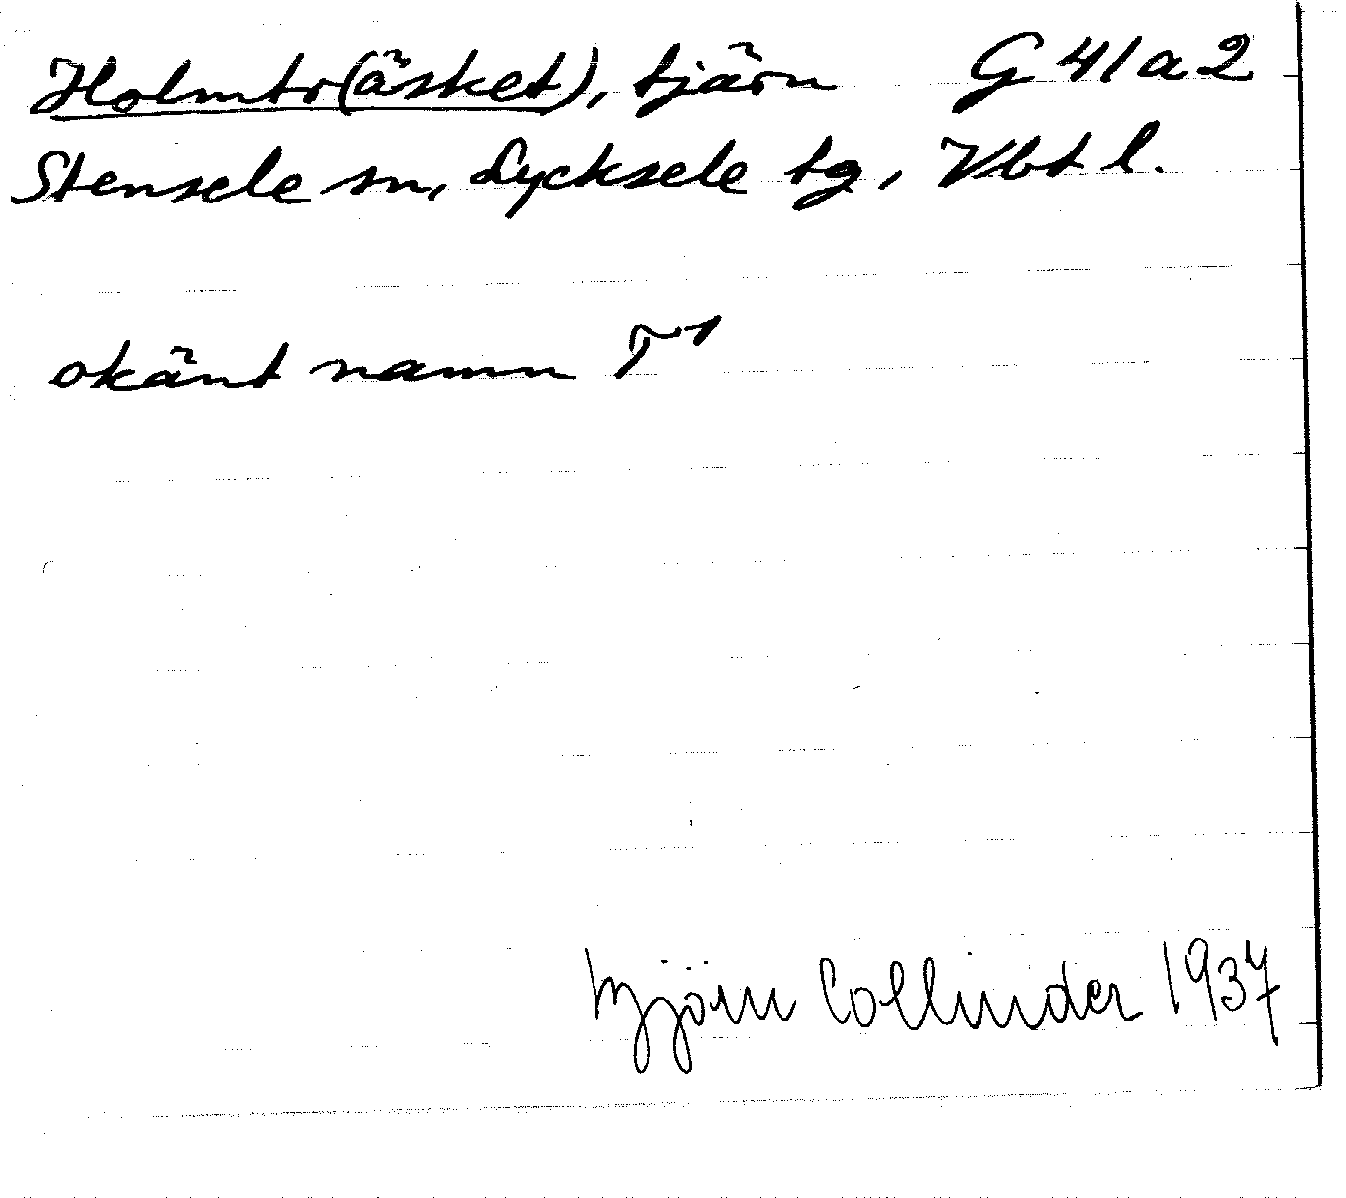 Holmtr(äsket), tjärn G 41 a 2
Stensele sn, Lycksele tg, Vbt l.
okänt namn T¹
Björn Collinder 1937